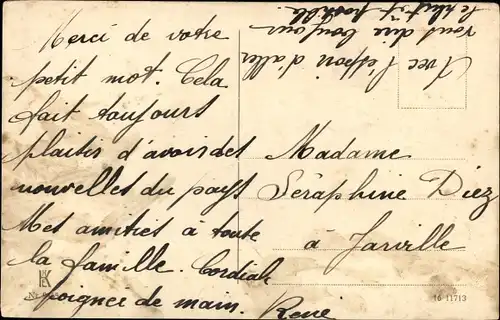 Merci de votre
petit mot. Cela
fait toujours
plaisir d'avoir des
nouvelles du pays
Mes amitiés à toute
la famille. Cordiale
poignée de main. René
Avec l'espoir d'aller
vous dire bonjour
le plus tôt possible.
Madame
Séraphine Diez
à Jarville
16 11713